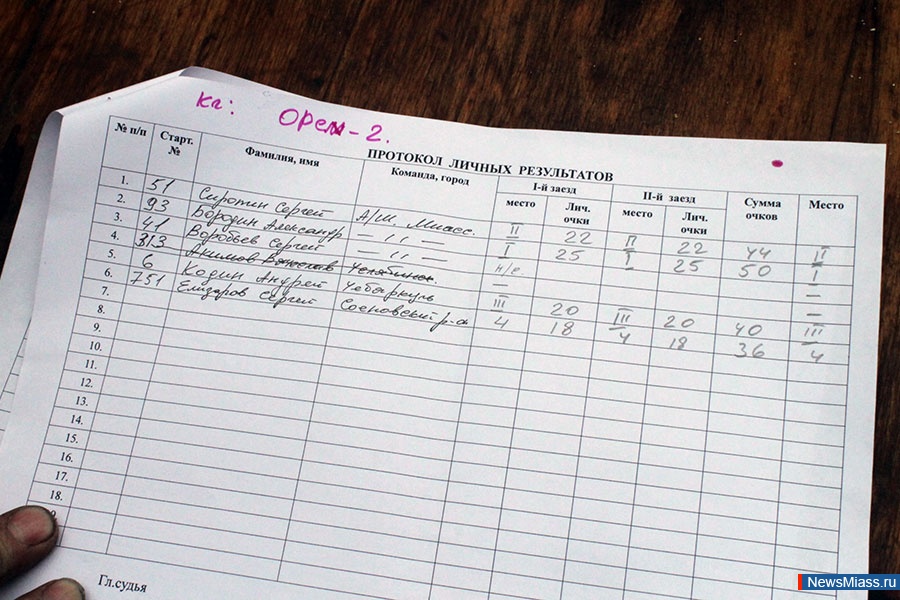 кл: ОРЕЛ-2.
ПРОТОКОЛ ЛИЧНЫХ РЕЗУЛЬТАТОВ
№ п/п Старт. № Фамилия, имя Команда, город I-й заезд II-й заезд Сумма очков Место
место Лич. очки место Лич. очки
1. 51 Сиротин Сергей А/М. Миасс. II 22 II 22 44 II
2. 93 Бородин Александр — 11 — I 25 I 25 50 I
3. 41 Воробьев Сергей — 11 — н/е —
4. 313 Акимов Вячеслав Челябинск. — —
5. 6 Кодин Андрей Чебаркуль III 20 III 20 40 III
6. 751 Елизаров Сергей Сосновский р-он 4 18 4 18 36 4
7.
8.
9.
10.
11.
12.
13.
14.
15.
16.
17.
18.
Гл.судья
NewsMiass.ru